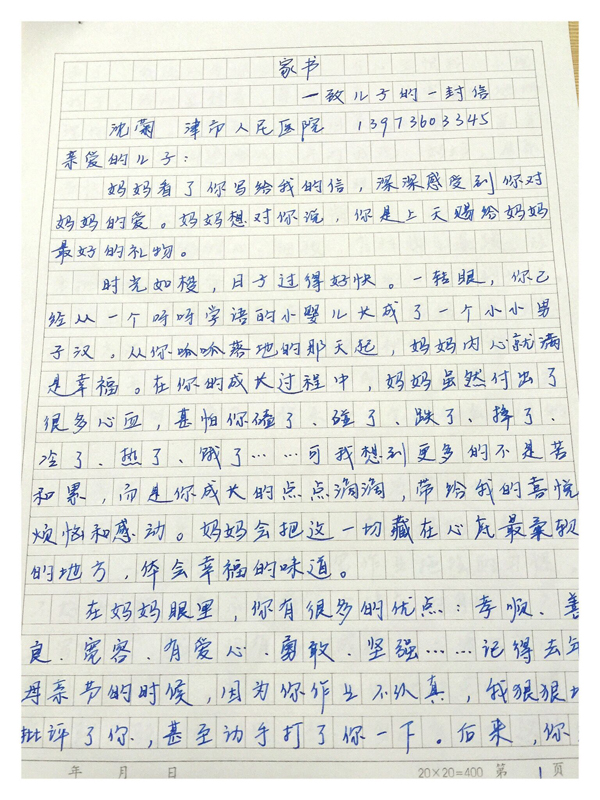 家书
—致儿子的一封信
沈菊 津市人民医院 13973603345
亲爱的儿子：
妈妈看了你写给我的信，深深感受到你对
妈妈的爱。妈妈想对你说，你是上天赐给妈妈
最好的礼物。
时光如梭，日子过得好快。一转眼，你已
经从一个呀呀学语的小婴儿长成了一个小小男
子汉。从你呱呱落地的那天起，妈妈内心就满
是幸福。在你的成长过程中，妈妈虽然付出了
很多心血，甚怕你磕了、碰了、跌了、摔了、
冷了、热了、饿了……可我想到更多的不是苦
和累，而是你成长的点点滴滴，带给我的喜悦
烦恼和感动。妈妈会把这一切藏在心底最柔软
的地方，体会幸福的味道。
在妈妈眼里，你有很多的优点：孝顺、善
良、宽容、有爱心、勇敢、坚强……记得去年
母亲节的时候，因为你作业不认真，我狠狠地
批评了你，甚至动手打了你一下。后来，你
年 月 日 20×20=400 第 1 页